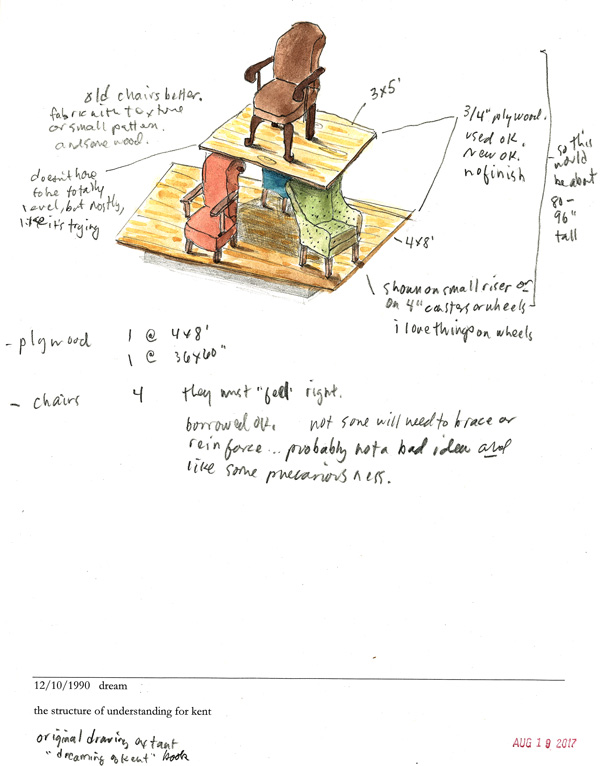 old chairs better.
fabric with texture
or small pattern.
and some wood.
doesn't have
to be totally
level, but mostly,
like it's trying
3x5'
3/4" plywood.
used ok.
new ok.
no finish
so this
would
be about
80-
96"
tall
4x8'
shown on small riser or
on 4" casters or wheels-
i love things on wheels
- plywood 1 @ 4x8'
1 @ 36x60"
- chairs 4 they must "feel" right.
borrowed ok. not some will need to brace or
reinforce... probably not a bad idea and
like some precariousness.
12/10/1990 dream
the structure of understanding for kent
original drawing extant
"dreaming of kent" book
AUG 19 2017